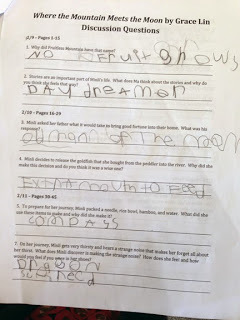 Where the Mountain Meets the Moon by Grace Lin
Discussion Questions
2/9 – Pages 1-15
1. Why did Fruitless Mountain have that name?
NO Fruit grows
2. Stories are an important part of Minli's life. What does Ma think about the stories and why do
you think she feels that way?
DAY dreamer
2/10 – Pages 16-29
3. Minli asked her father what it would take to bring good fortune into their home. What was his
response?
old man of the moon
4. Minli decides to release the goldfish that she bought from the peddler into the river. Why did she
make this decision and do you think it was a wise one?
Extra mouth to Feed
2/13 – Pages 30-45
5. To prepare for her journey, Minli packed a needle, rice bowl, bamboo, and water. What did she
use these items to make and why did she make it?
comPASS
7. On her journey, Minli gets very thirsty and hears a strange noise that makes her forget all about
her thirst. What does Minli discover is making the strange noise? How does she feel and how
would you feel if you were in her shoes?
DRAGON